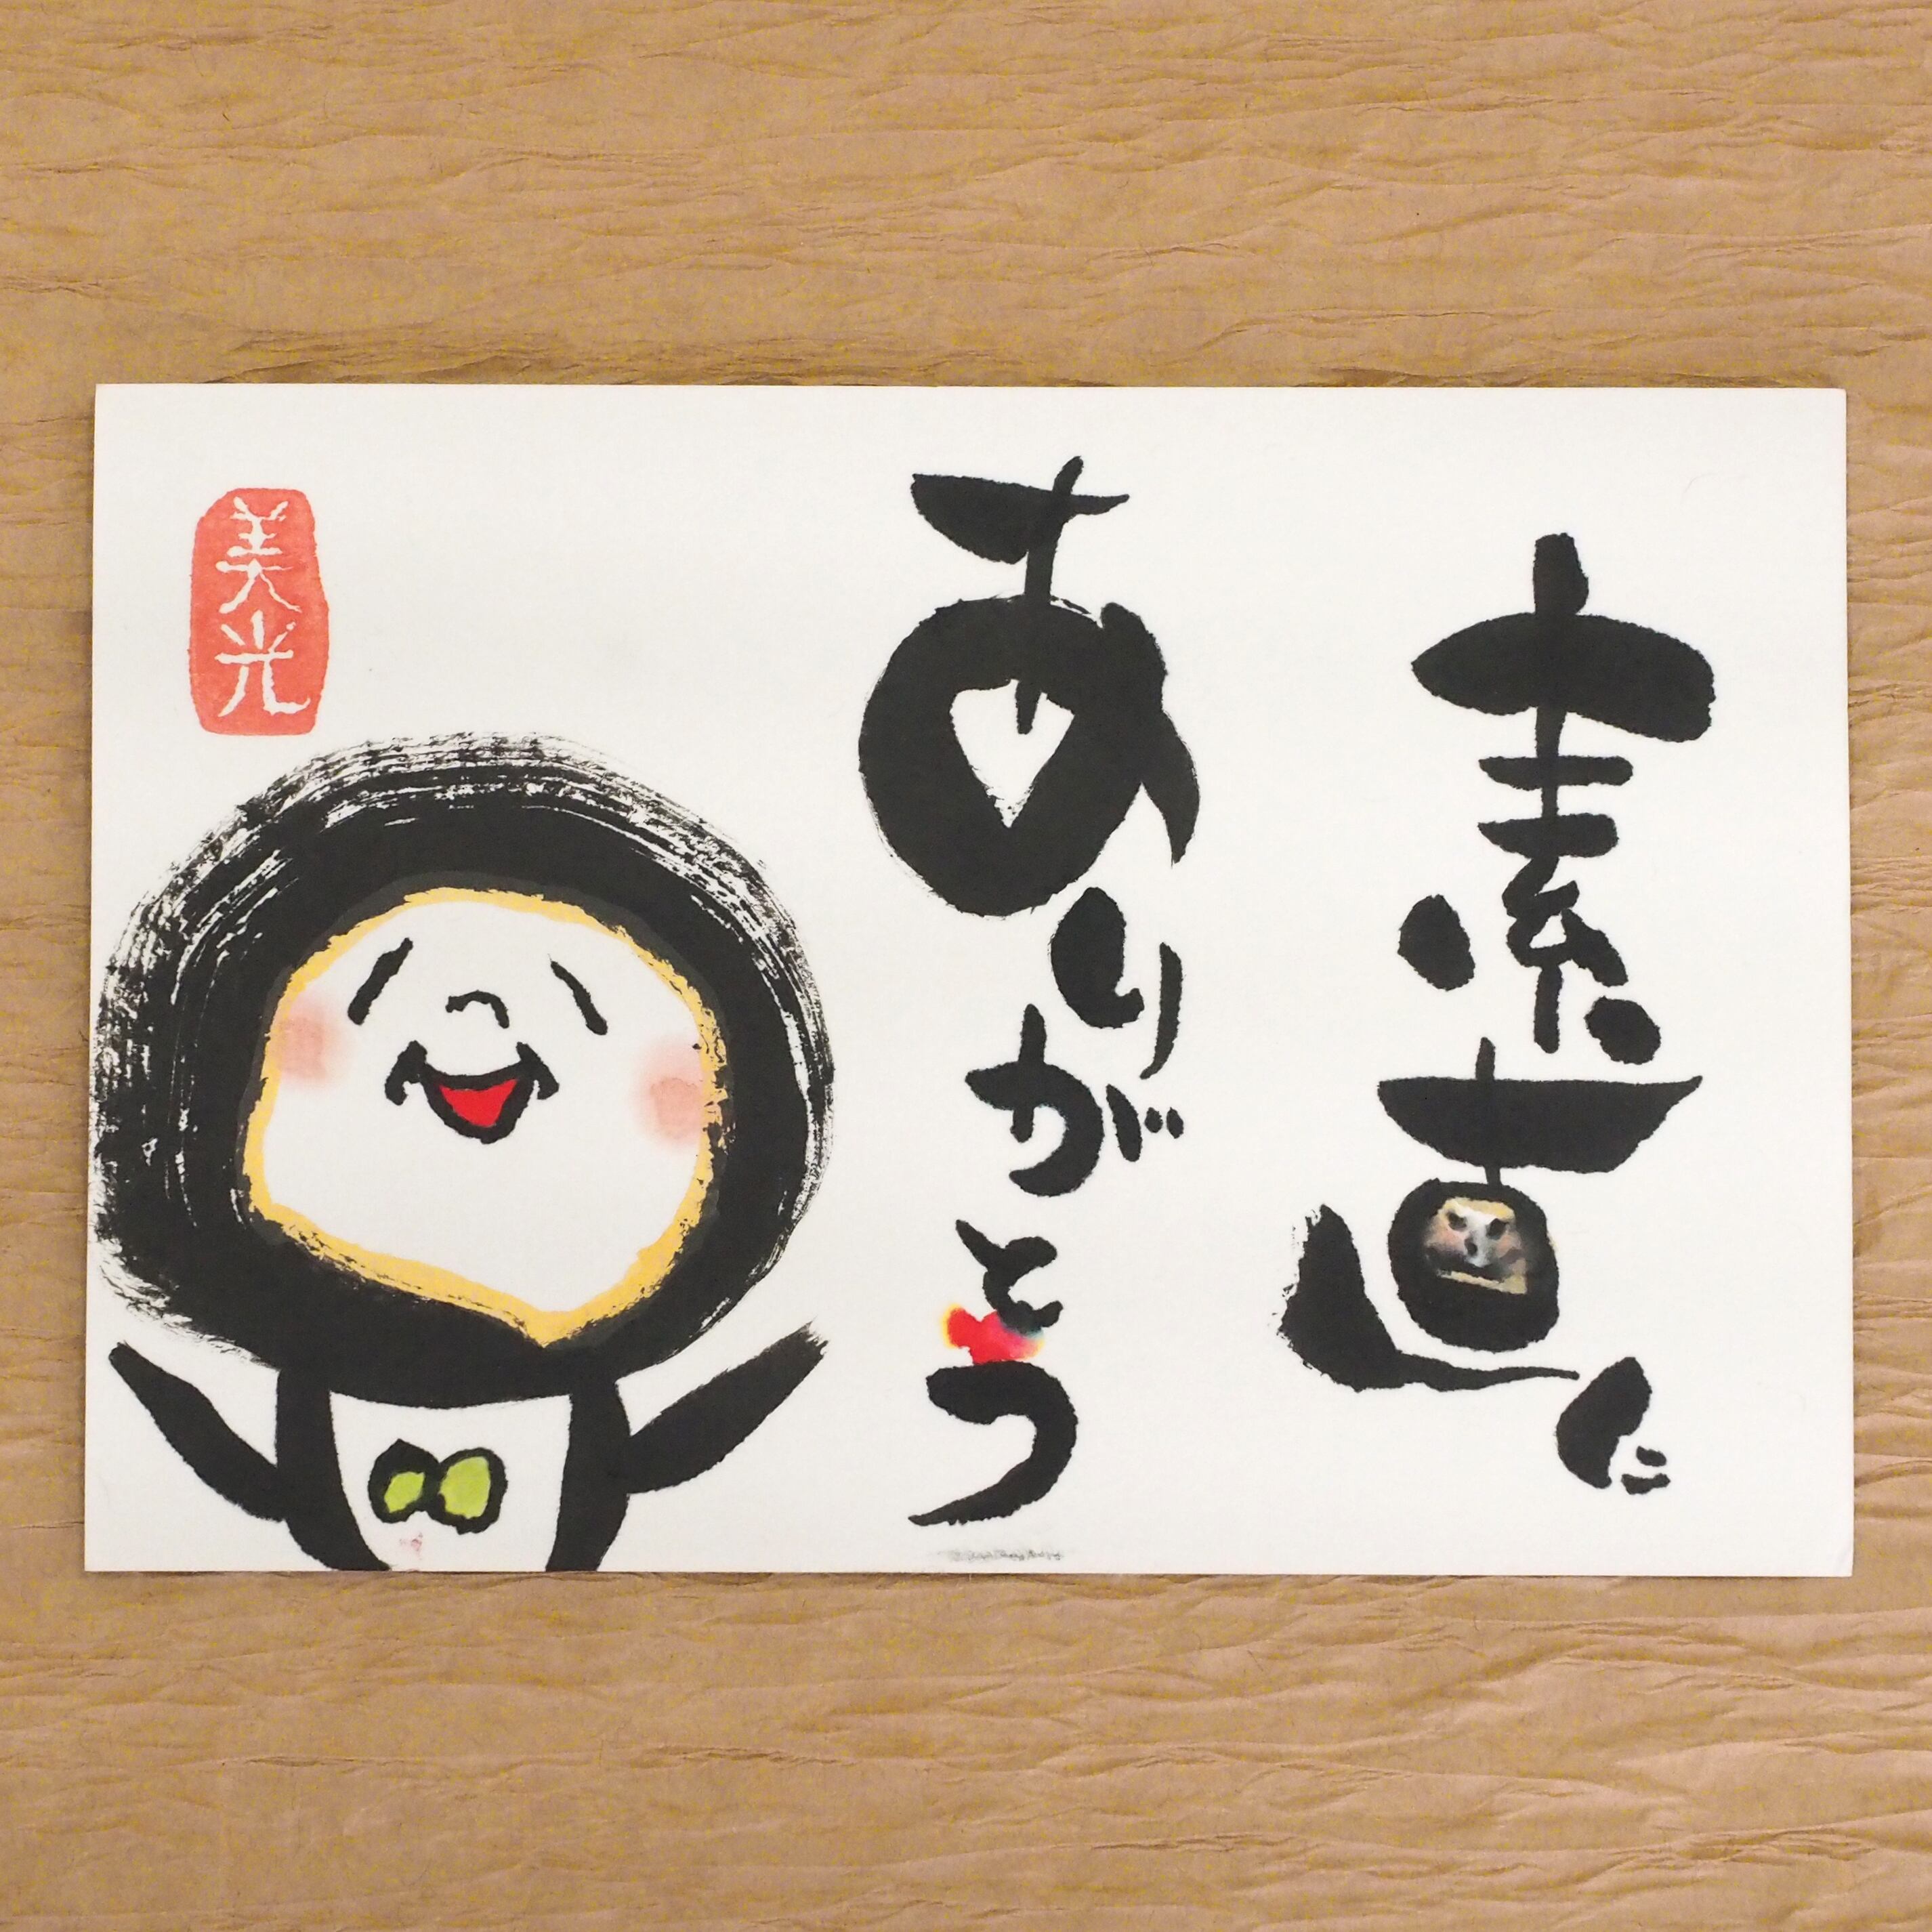 素直に
ありがとう
美光